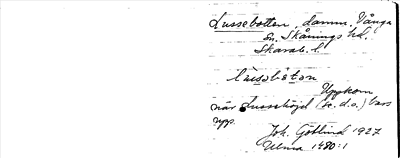 Lussebotten, damm, Vånga
sn, Skånings hd,
Skarab. l.
Uppkom
när Lussehöjd (se d.o.) bars
upp.
Joh. Götlind 1927
Ulma 1480:1